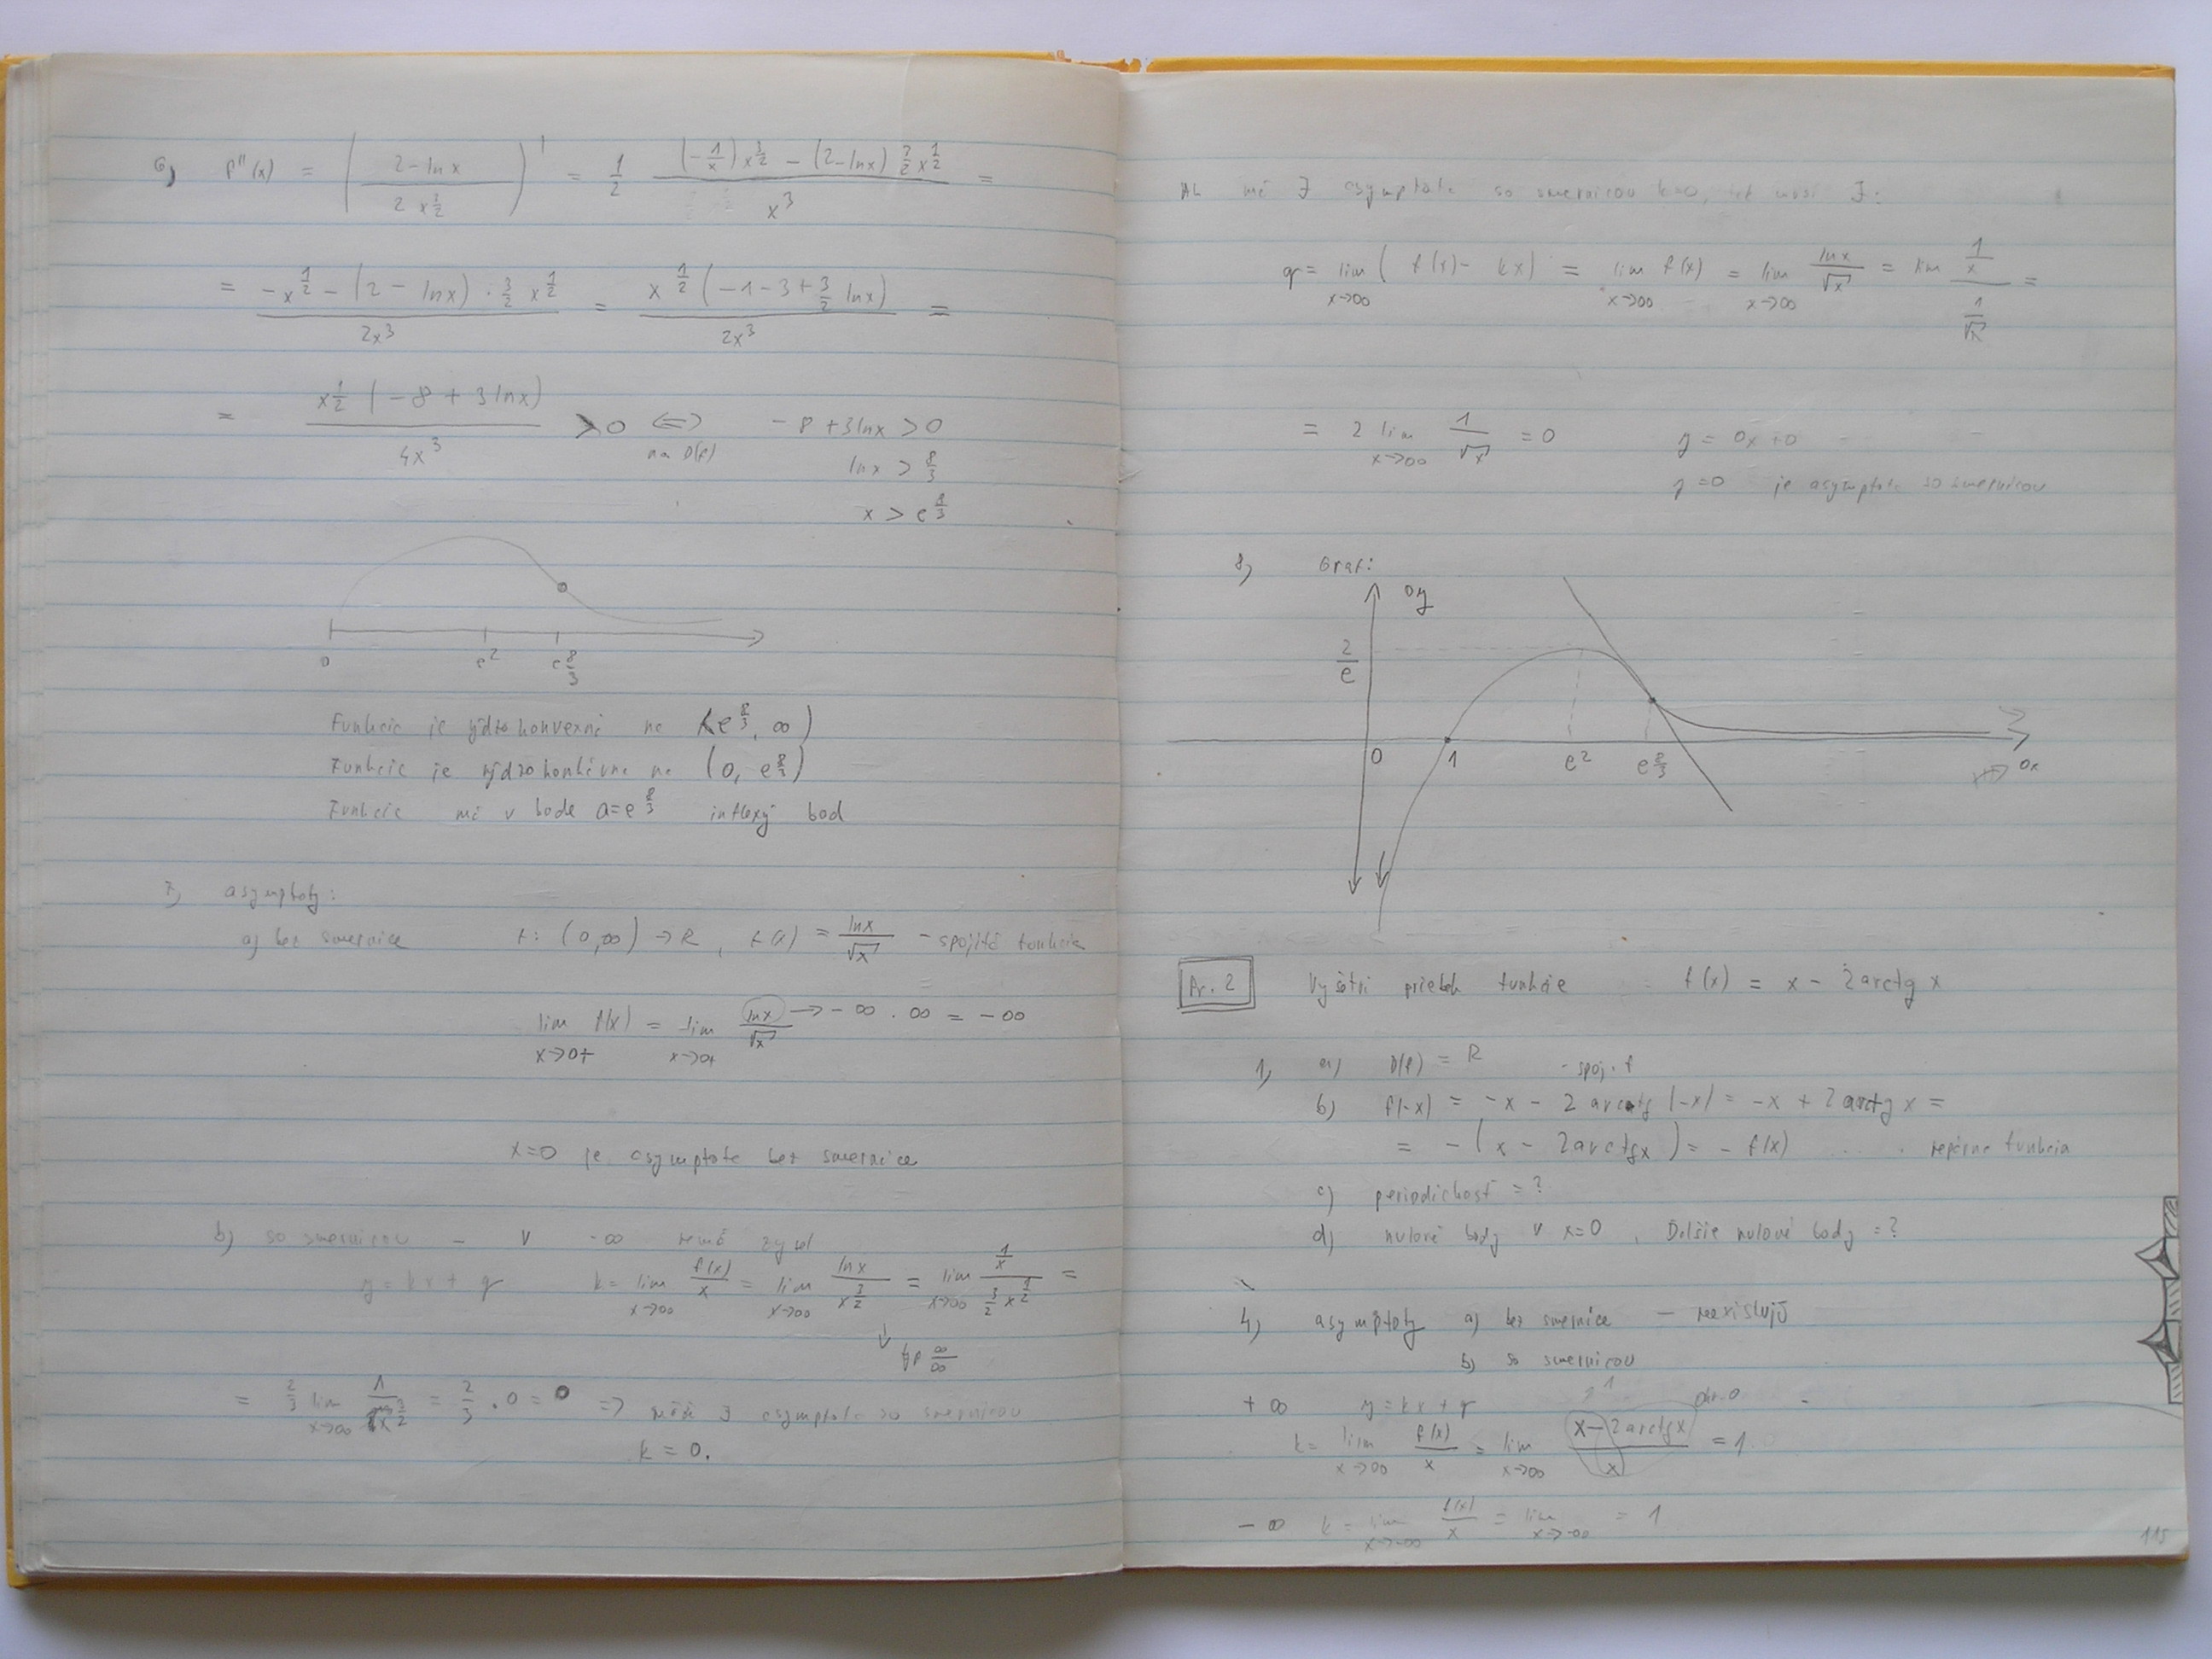 6) f''(x) = ( (2 - ln x) / (2 x^{3/2}) )' = 1/2 ((-1/x) x^{3/2} - (2 - ln x) 3/2 x^{1/2}) / x^3 =
= (-x^{1/2} - (2 - ln x) · 3/2 x^{1/2}) / 2x^3 = x^{1/2} (-1 - 3 + 3/2 ln x) / 2x^3 =
= x^{1/2} (-8 + 3 ln x) / 4x^3 > 0 <=> na D(f) -8 + 3 ln x > 0
ln x > 8/3
x > e^{8/3}
0 e^2 e^{8/3}
Funkcia je rýdzokonvexná na <e^{8/3}, ∞)
Funkcia je rýdzokonkávna na (0, e^{8/3})
Funkcia má v bode a = e^{8/3} inflexný bod
7) asymptoty:
a) bez smernice f: (0, ∞) → R, f(x) = ln x / √x - spojitá funkcia
lim_{x→0+} f(x) = lim_{x→0+} ln x / √x → -∞ . ∞ = -∞
x=0 je asymptota bez smernice
b) so smernicou - v -∞ nemá zmysel
y = kx + q k = lim_{x→∞} f(x)/x = lim_{x→∞} ln x / x^{3/2} = lim_{x→∞} (1/x) / (3/2 x^{1/2}) =
↓ typ ∞/∞
= 2/3 lim_{x→∞} 1 / x^{3/2} = 2/3 . 0 = 0 => môže ∃ asymptota so smernicou
k = 0.
Ak má ∃ asymptota so smernicou k=0, tak musí ∃:
q = lim_{x→∞} (f(x) - kx) = lim_{x→∞} f(x) = lim_{x→∞} ln x / √x = lim (1/x) / (1/√x) =
= 2 lim_{x→∞} 1/√x = 0 y = 0x + 0
y = 0 je asymptota so smernicou
8) Graf:
oy
2/e
0 1 e^2 e^{8/3} ox
Pr. 2 Vyšetri priebeh funkcie f(x) = x - 2 arctg x
1) a) D(f) = R - spoj. f
b) f(-x) = -x - 2 arctg (-x) = -x + 2 arctg x =
= -(x - 2 arctg x) = -f(x) ... nepárna funkcia
c) periodickosť = ?
d) nulové body v x=0, Ďalšie nulové body = ?
4) asymptoty a) bez smernice - neexistujú
b) so smernicou
+∞ y = kx + q
k = lim_{x→∞} f(x)/x = lim_{x→∞} (x - 2 arctg x) / x = 1
-∞ k = lim_{x→-∞} f(x)/x = lim_{x→-∞} = 1
115